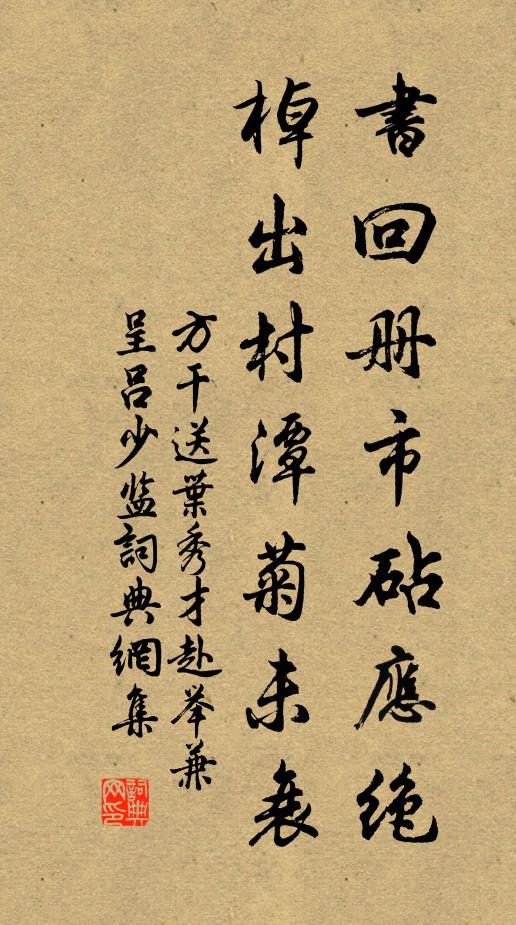 書回册市砧應絶
棹出村潭菊未衰
方干送葉秀才赴举兼
呈吕少监詞典網集
詞典网印